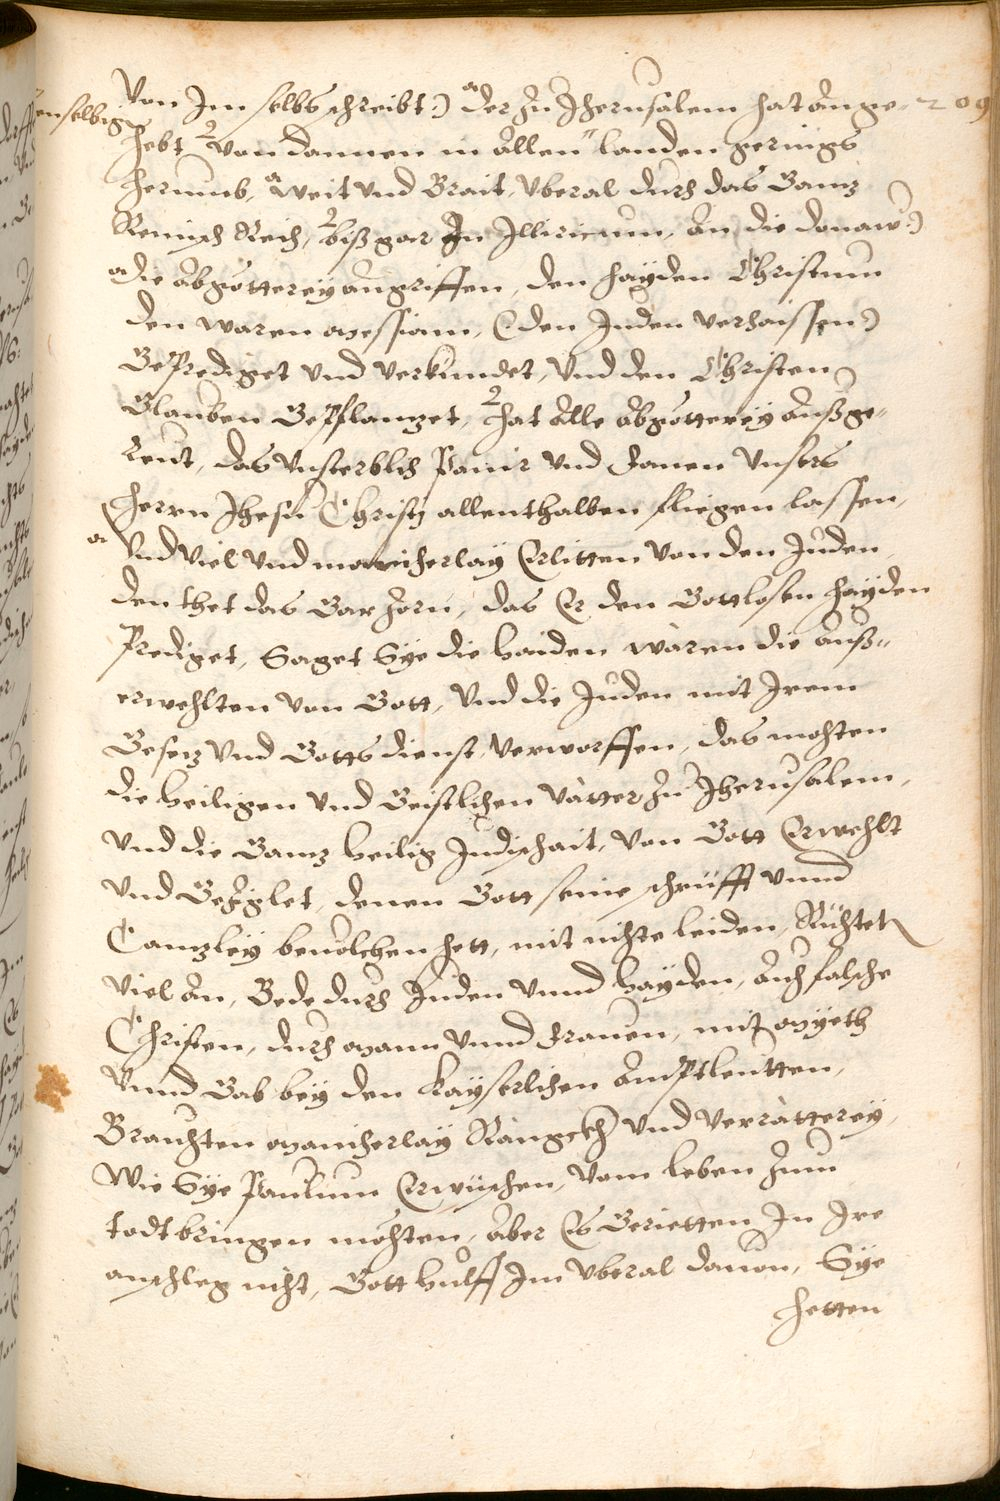 209
Von Im selbs schreibt:) der zu Jherusalem hat ange-
hebt von dannen in allen landen gerings
herumb, weit Vnd Brait, Vberal durch das Ganz
Remisch Reich, biß gar In Illiricum, an die donaw:)
die abgötterey angriffen, den hayden Christum
den waren messiam, (den Juden verhaissen:)
Geprediget vnd verkündet, Vnd den Christen
Glauben Gepflanzet, hat alle abgötterey außge-
reut, das Vnsterblich Panir vnd Fanen Vnsers
Herrn Jhesu Christj allenthalben fliegen lassen,
Vnd viel vnd mancherlay Erlitten von den Juden,
den thet das Gar Zorn, das Er den Gottlosen hayden
Prediget, Saget Sye die haiden wären die auß-
erwehlten von Gott, Vnd die Juden mit Irem
Gesetz Vnd Gottsdienst verworffen, das mochten
die heiligen vnd Geistlichen vätter zu Jherusalem,
vnd die Ganz heilig Judischait, von Gott Erwehlt
vnd Geziglet, denen Gott seine schrüfft vnnd
Canzley beuolchen hett, mit nichte leiden, Richtet
viel an, Bede durch Juden vnnd hayden, auch falsche
Christen, durch mann vnnd Frauen, mit myeth
vnnd Gab bey den Kayserlichen ampltleütten,
Brauchten mancherlay Ränckh vnd verrätterey,
Wie Sye Paulum Erwüschen, vom leben zum
todt bringen möchten, aber Es Gerietten In Ire
anschleg nicht, Gott hulff Im vberal dauon, Sye
hetten